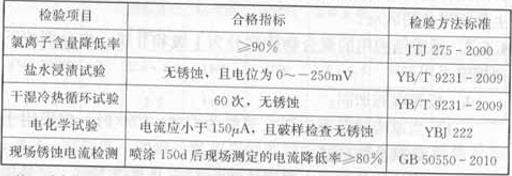 检验项目 合格指标 检验方法标准
氯离子含量降低率 ≥90% JTJ 275-2000
盐水浸渍试验 无锈蚀，且电位为 0～-250mV YB/T 9231-2009
干湿冷热循环试验 60次，无锈蚀 YB/T 9231-2009
电化学试验 电流应小于 150μA，且破样检查无锈蚀 YBJ 222
现场锈蚀电流检测 喷涂 150d 后现场测定的电流降低率≥80% GB 50550-2010